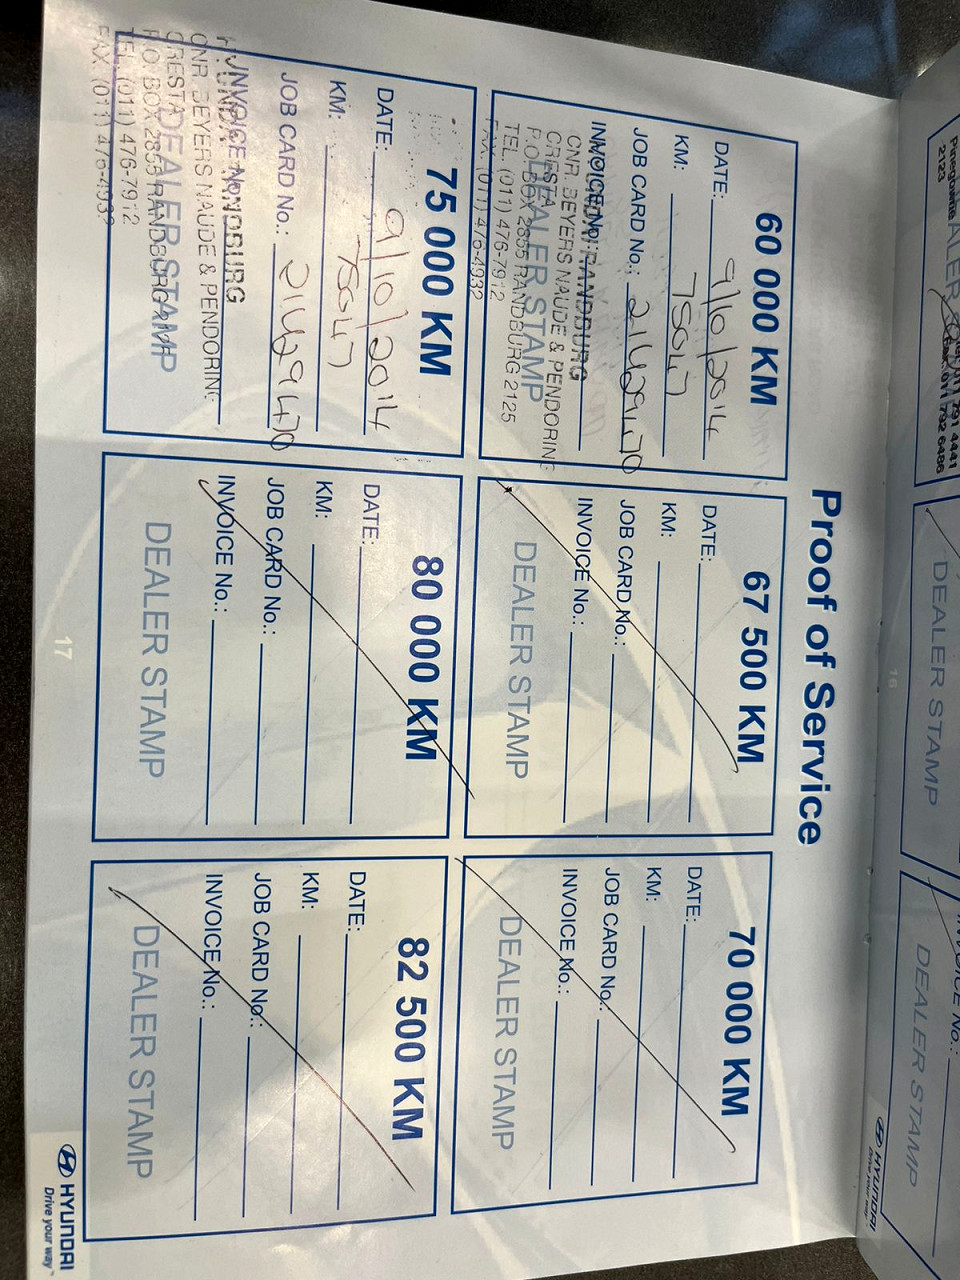 Proof of Service
60 000 KM
DATE: 9/10/2014
KM: 75047
JOB CARD No.:
INVOICE No.: RANDBURG
CNR. BEYERS NAUDE & PENDORING
CRESTA
DEALER STAMP
P.O. BOX 2855 RANDBURG 2125
TEL. (011) 476-7912
FAX. (011) 476-4932
67 500 KM
DATE:
KM:
JOB CARD No.:
INVOICE No.:
DEALER STAMP
70 000 KM
DATE:
KM:
JOB CARD No.:
INVOICE No.:
DEALER STAMP
75 000 KM
DATE: 9/10/2014
KM: 75047
JOB CARD No.:
INVOICE No.:
CNR. BEYERS NAUDE & PENDORING
CRESTA
DEALER STAMP
P.O. BOX 2855 RANDBURG
TEL. (011) 476-7912
FAX. (011) 476-4932
80 000 KM
DATE:
KM:
JOB CARD No.:
INVOICE No.:
DEALER STAMP
82 500 KM
DATE:
KM:
JOB CARD No.:
INVOICE No.:
DEALER STAMP
17
HYUNDAI
Drive your way™
2123
791 4441
011 792 6486
DEALER STAMP
16
INVOICE No.:
DEALER STAMP
HYUNDAI
Drive your way™